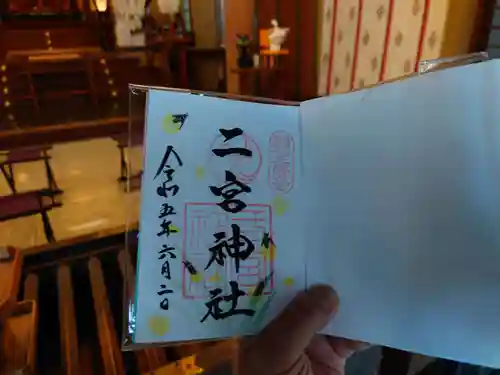 二宮神社
令和五年六月二日